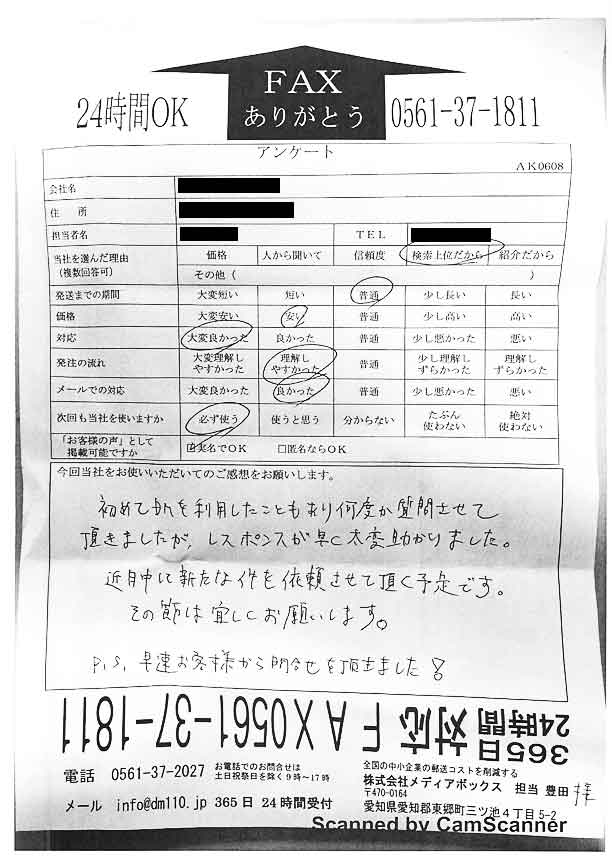 FAX
ありがとう
24時間OK
0561-37-1811
アンケート
AK0608
会社名
住　所
担当者名 TEL
当社を選んだ理由
(複数回答可)
価格 人から聞いて 信頼度 検索上位だから 紹介だから
その他（ ）
発送までの期間 大変短い 短い 普通 少し長い 長い
価格 大変安い 安い 普通 少し高い 高い
対応 大変良かった 良かった 普通 少し悪かった 悪い
発注の流れ 大変理解しやすかった 理解しやすかった 普通 少し理解しずらかった 理解しずらかった
メールでの対応 大変良かった 良かった 普通 少し悪かった 悪い
次回も当社を使いますか 必ず使う 使うと思う 分からない たぶん使わない 絶対使わない
「お客様の声」として
掲載可能ですか
☑実名でOK □匿名ならOK
今回当社をお使いいただいてのご感想をお願いします。
初めてDMを利用したこともあり何度か質問させて
頂きましたが、レスポンスが早く大変助かりました。
近日中に新たな件を依頼させて頂く予定です。
その節は宜しくお願いします。
P.S. 早速お客様から問合せを頂きました!
365日
24時間
対応 FAX0561-37-1811
電話 0561-37-2027
お電話でのお問合せは
土日祝祭日を除く9時～17時
メール info@dm110.jp 365日24時間受付
全国の中小企業の郵送コストを削減する
株式会社メディアボックス 担当 豊田 拝
〒470-0164
愛知県愛知郡東郷町三ツ池4丁目5-2
Scanned by CamScanner